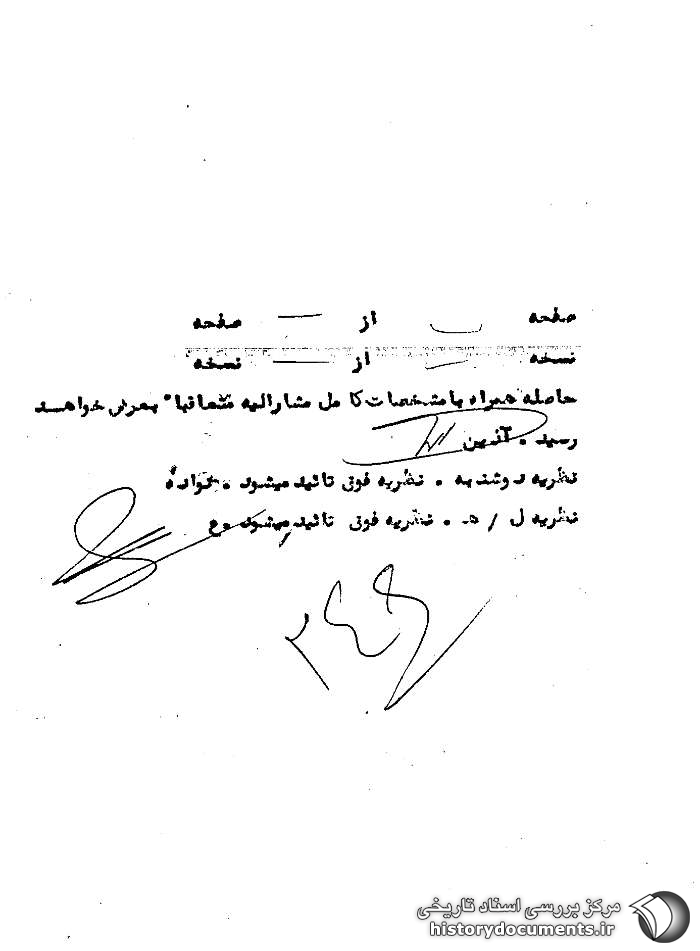 صفحه ـــ از ـــ صفحه
نسخه ـــ از ـــ نسخه
حاصله همراه با مشخصات کامل مشارالیه متعاقبا" بعرض خواهد
رسید . آذین
نظریه دوشنبه . نظریه فوق تائید میشود .
نظریه ل / ه . نظریه فوق تائید میشود . ع
مرکز بررسی اسناد تاریخی
historydocuments.ir